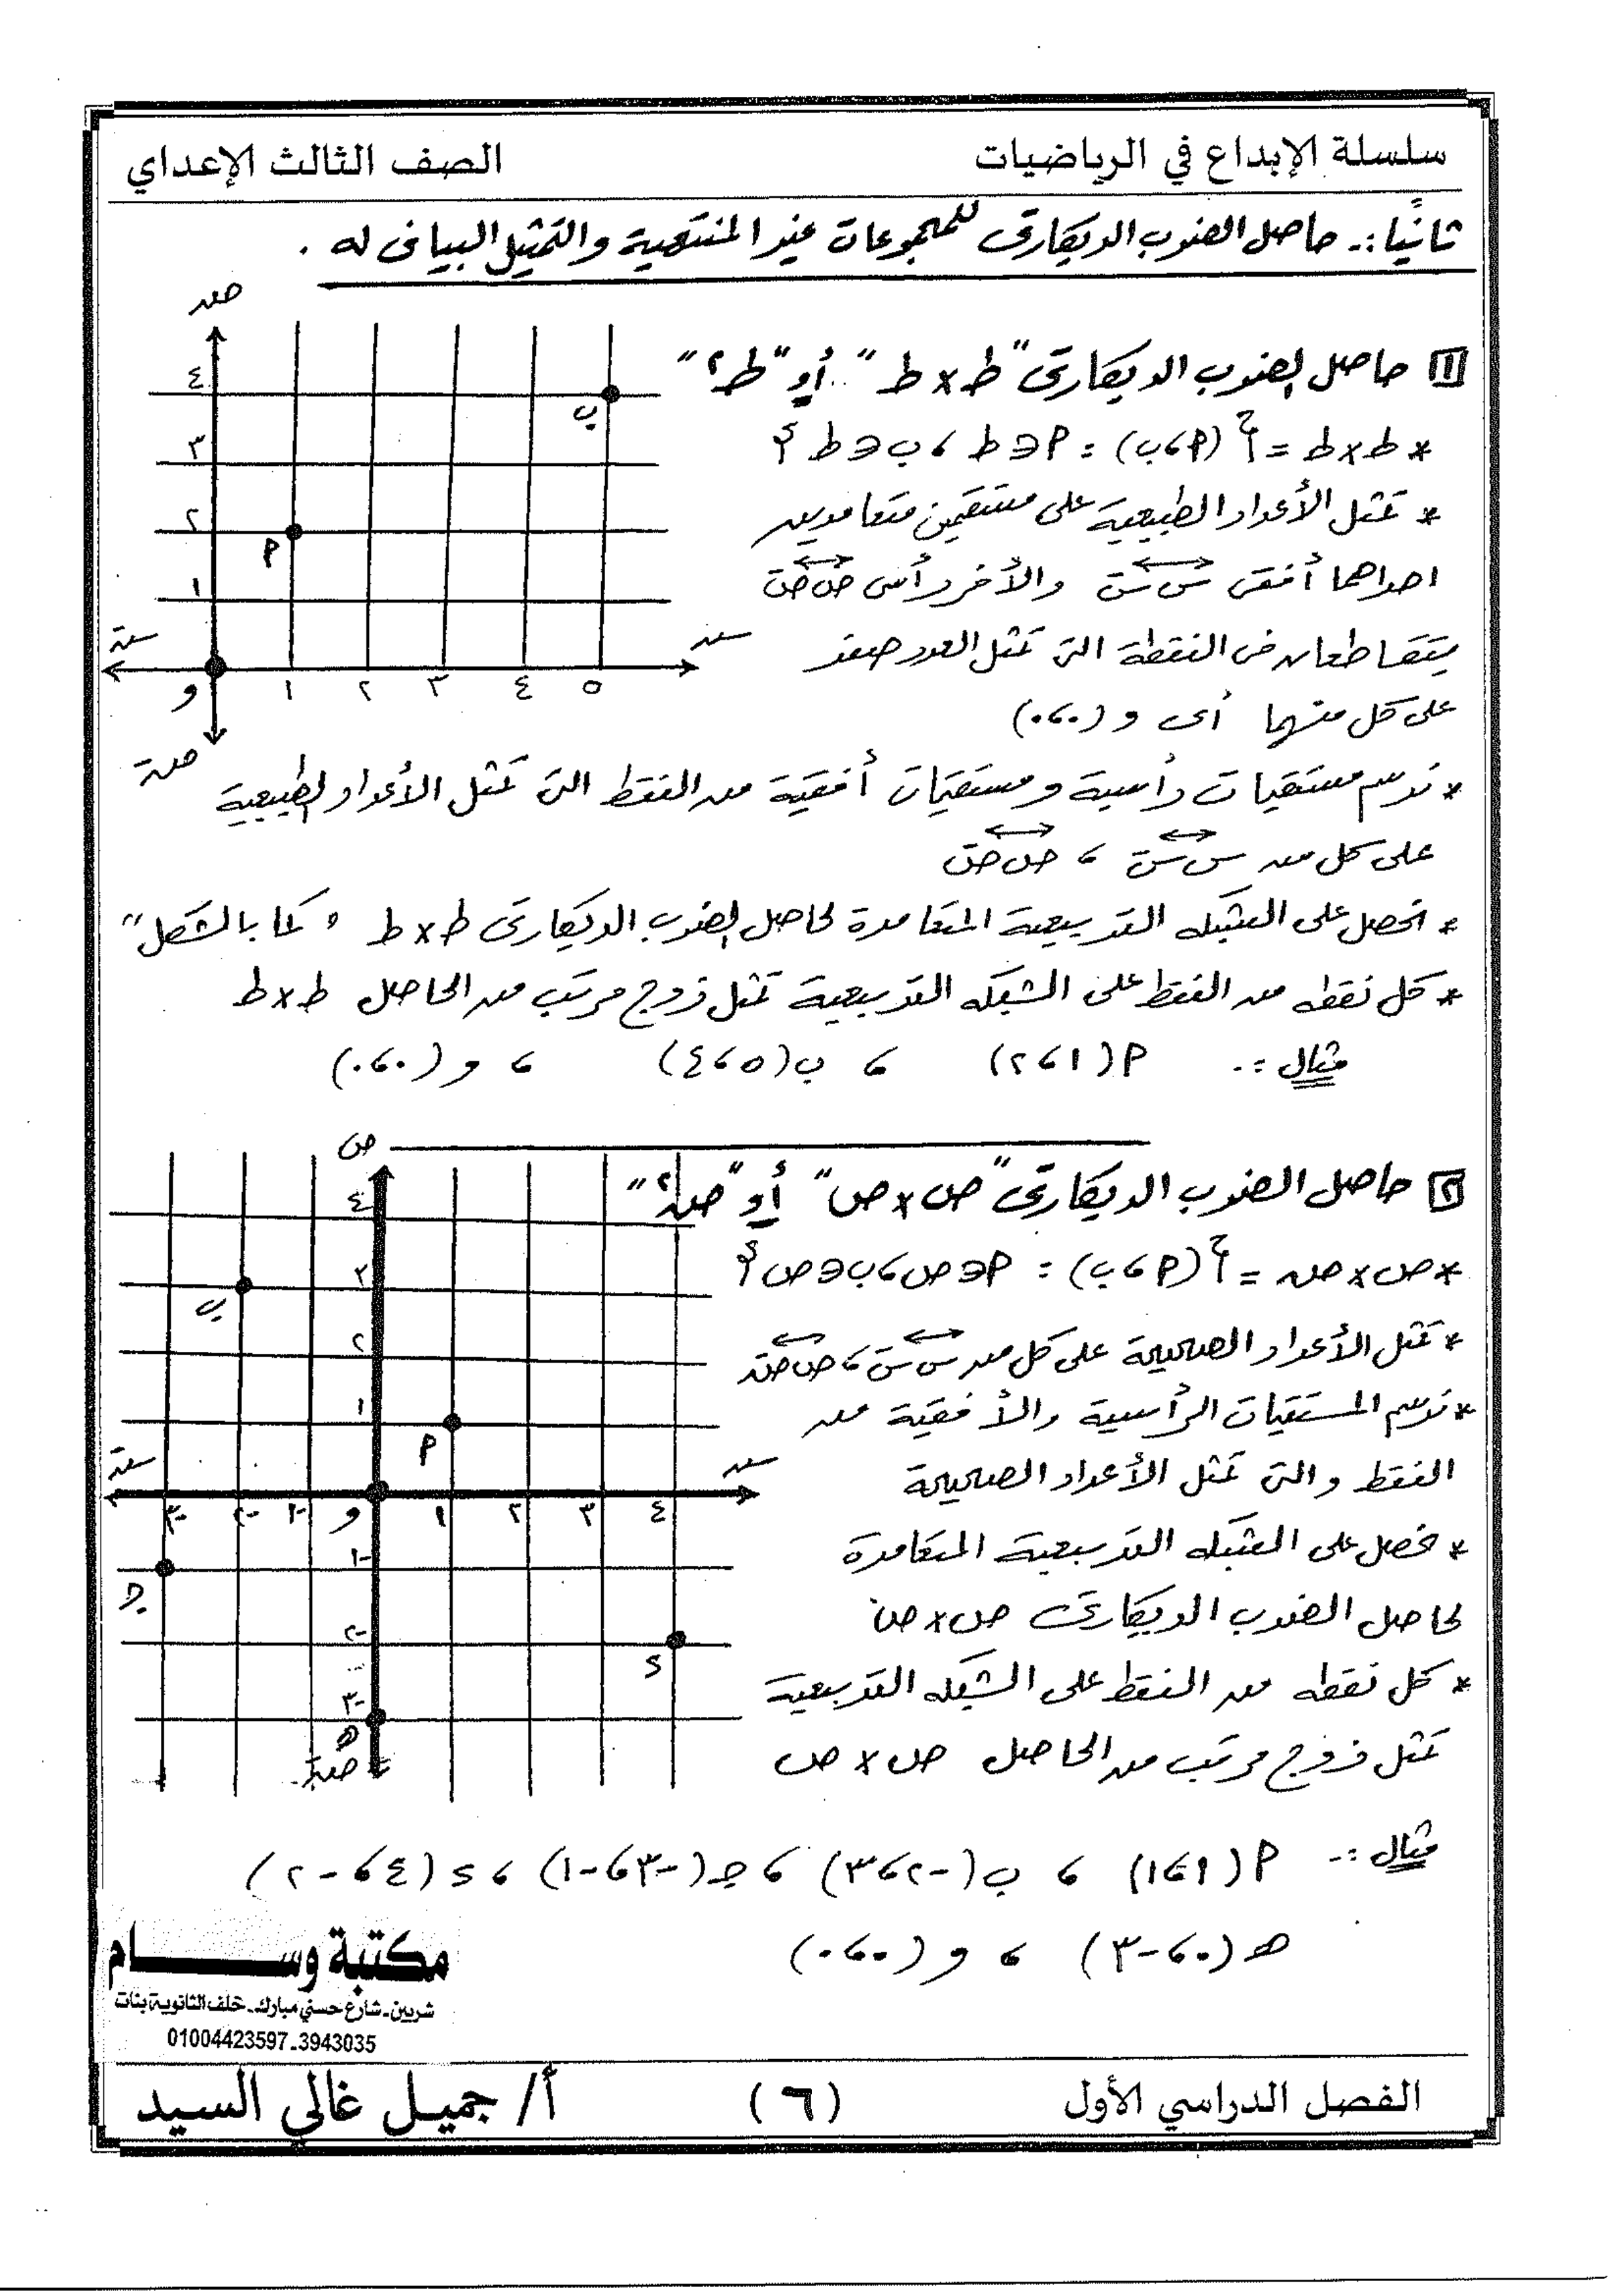 سلسلة الإبداع في الرياضيات
الصف الثالث الإعداي
ثانيًا :- حاصل الضرب الديكارتى للمجموعات غير المنتهية والتمثيل البيانى له .
[١] حاصل الضرب الديكارتى "ط × ط" أو "ط٢"
* ط × ط = { (أ ، ب) : أ ∈ ط ، ب ∈ ط }
* تمثل الأعداد الطبيعية على مستقيمين متعامدين
احداهما أفقى س سَ والأخر رأسى ص صَ
يتقاطعان فى النقطة التى تمثل العدد صفر
على كل منهما أى و (٠ ، ٠)
صـ
٤
٣
٢
١
ب
أ
سـ
سَ
و
١ ٢ ٣ ٤ ٥
صَ
* نرسم مستقيمات رأسية ومستقيمات أفقية من النقط التى تمثل الأعداد الطبيعية
على كل من س سَ ، ص صَ
* نحصل على الشبكه التربيعية المتعامدة لحاصل الضرب الديكارتى ط × ط " كما بالشكل "
* كل نقطه من النقط على الشبكه التربيعية تمثل زوج مرتب من الحاصل ط × ط
مثال :- أ (١ ، ٢) ، ب (٥ ، ٤) ، و (٠ ، ٠)
[٢] حاصل الضرب الديكارتى "ص × ص" أو "ص٢"
* ص × ص = { (أ ، ب) : أ ∈ ص ، ب ∈ ص }
* تمثل الأعداد الصحيحة على كل من س سَ ، ص صَ
* نرسم المستقيمات الرأسية والأفقية من
النقط والتى تمثل الأعداد الصحيحة
* نحصل على الشبكه التربيعية المتعامدة
لحاصل الضرب الديكارتى ص × ص
* كل نقطه من النقط على الشبكه التربيعية
تمثل زوج مرتب من الحاصل ص × ص
ص
٤
٣
٢
١
ب
أ
سـ
سَ
-٣ -٢ -١ و ١ ٢ ٣ ٤
-١
-٢
-٣
جـ
د
هـ
صَ
مثال :- أ (١ ، ١) ، ب (-٢ ، ٣) ، جـ (-٣ ، -١) ، د (٤ ، -٢)
هـ (٠ ، -٣) ، و (٠ ، ٠)
مكتبة وســـــام
شربين - شارع حسني مبارك - خلف الثانوية بنات
01004423597-3943035
الفصل الدراسي الأول
(٦)
أ/ جميل غالي السيد